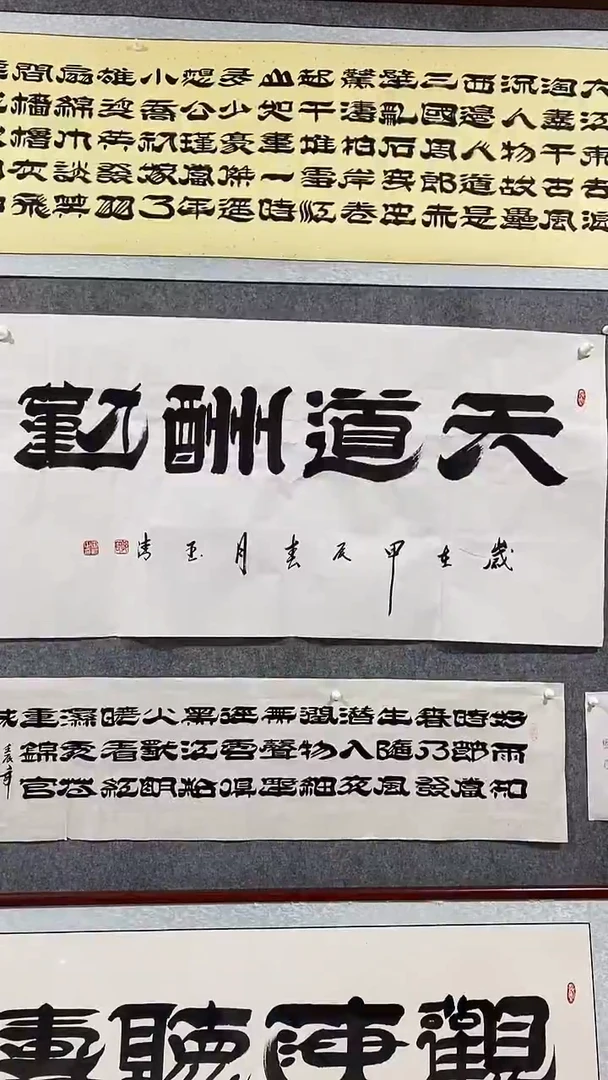 大江東去浪
淘盡千古風
流人物故壘
西邊人道是
三國周郎赤
壁亂石穿空
驚濤拍岸卷
起千堆雪江
山如畫一時
多少豪傑遥
想公瑾當年
小喬初嫁了
雄姿英發羽
扇綸巾談笑
間檣櫓灰飛
天道酬勤
歲在甲辰春月
好雨知
時節當
春乃發
生隨風
潛入夜
潤物細
無聲野
徑雲俱
黑江船
火獨明
曉看紅
濕處花
重錦官
城
觀海聽濤